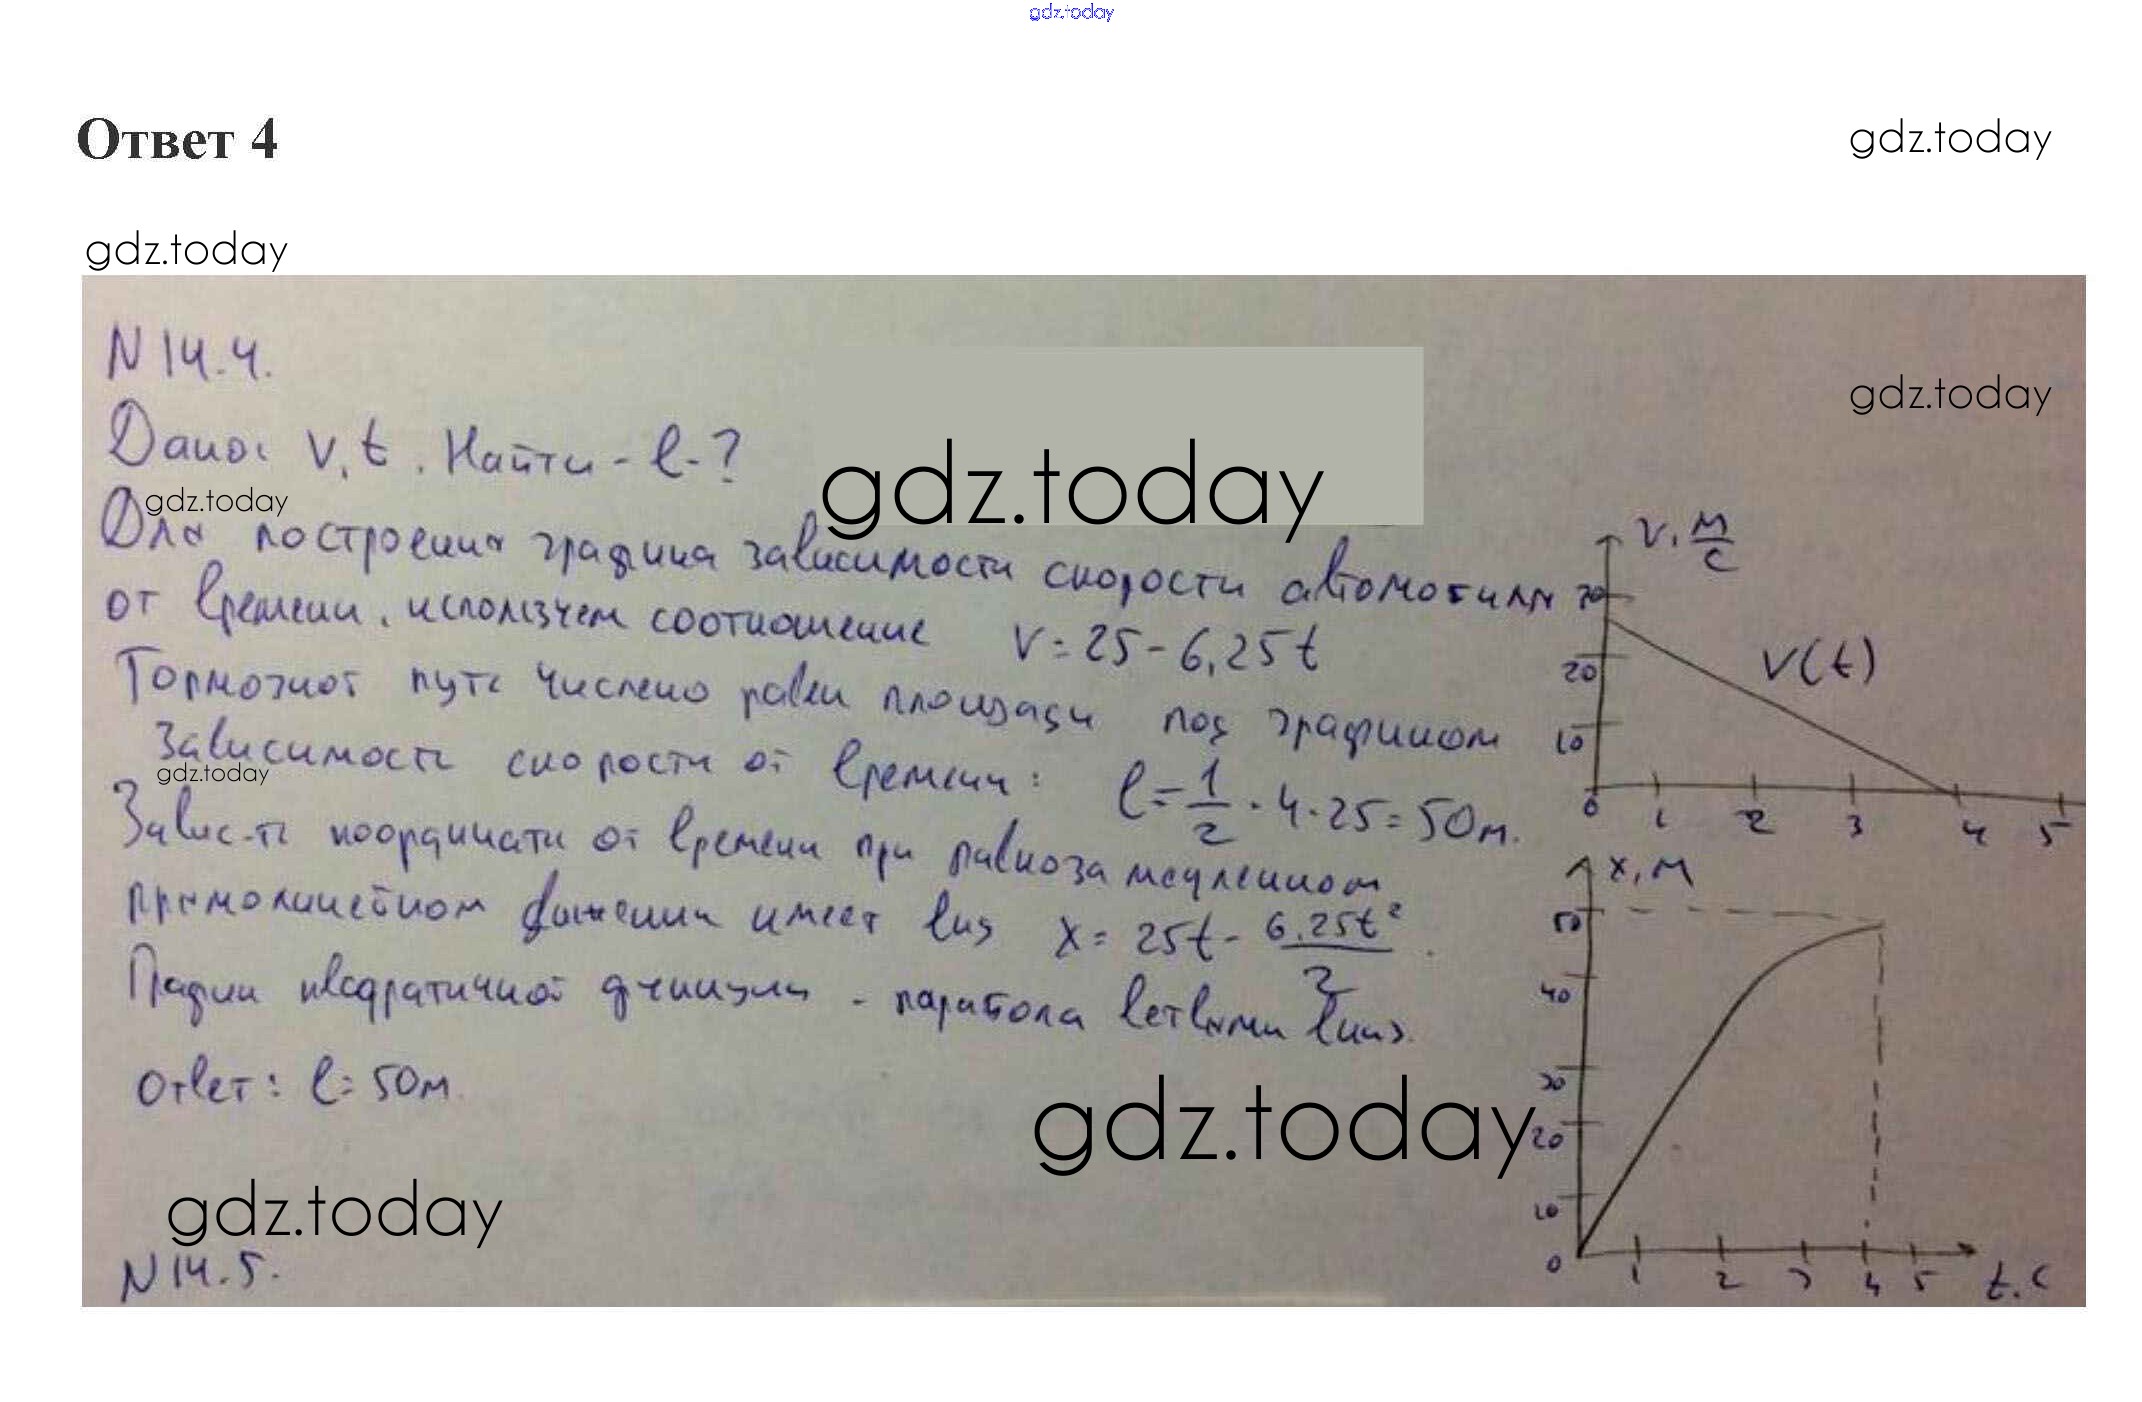 gdz.today
Ответ 4
gdz.today
gdz.today
N 14.4.
gdz.today
Дано: v, t. Найти - l - ?
gdz.today
gdz.today
Для построения графика зависимости скорости автомобиля
от времени, используем соотношение v = 25 - 6,25t
Тормозной путь числено равен площади под графиком
зависимости скорости от времени: l = 1/2 · 4 · 25 = 50 м.
gdz.today
Завис-ть координаты от времени при равнозамедленном
прямолинейном движении имеет вид x = 25t - 6,25t²/2.
График квадратичной функции - парабола ветвями вниз.
Ответ: l = 50 м.
gdz.today
gdz.today
N 14.5.
v, м/с
30
20
10
0 1 2 3 4 5
v(t)
x, м
50
40
30
20
10
0 1 2 3 4 5 t, с